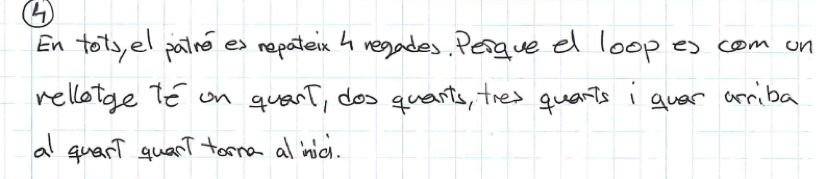 4
En tots, el patró es repateix 4 vegades. Perque el loop es com un
rellotge té un quart, dos quarts, tres quarts i quar arriba
al quart quart torna al inici.